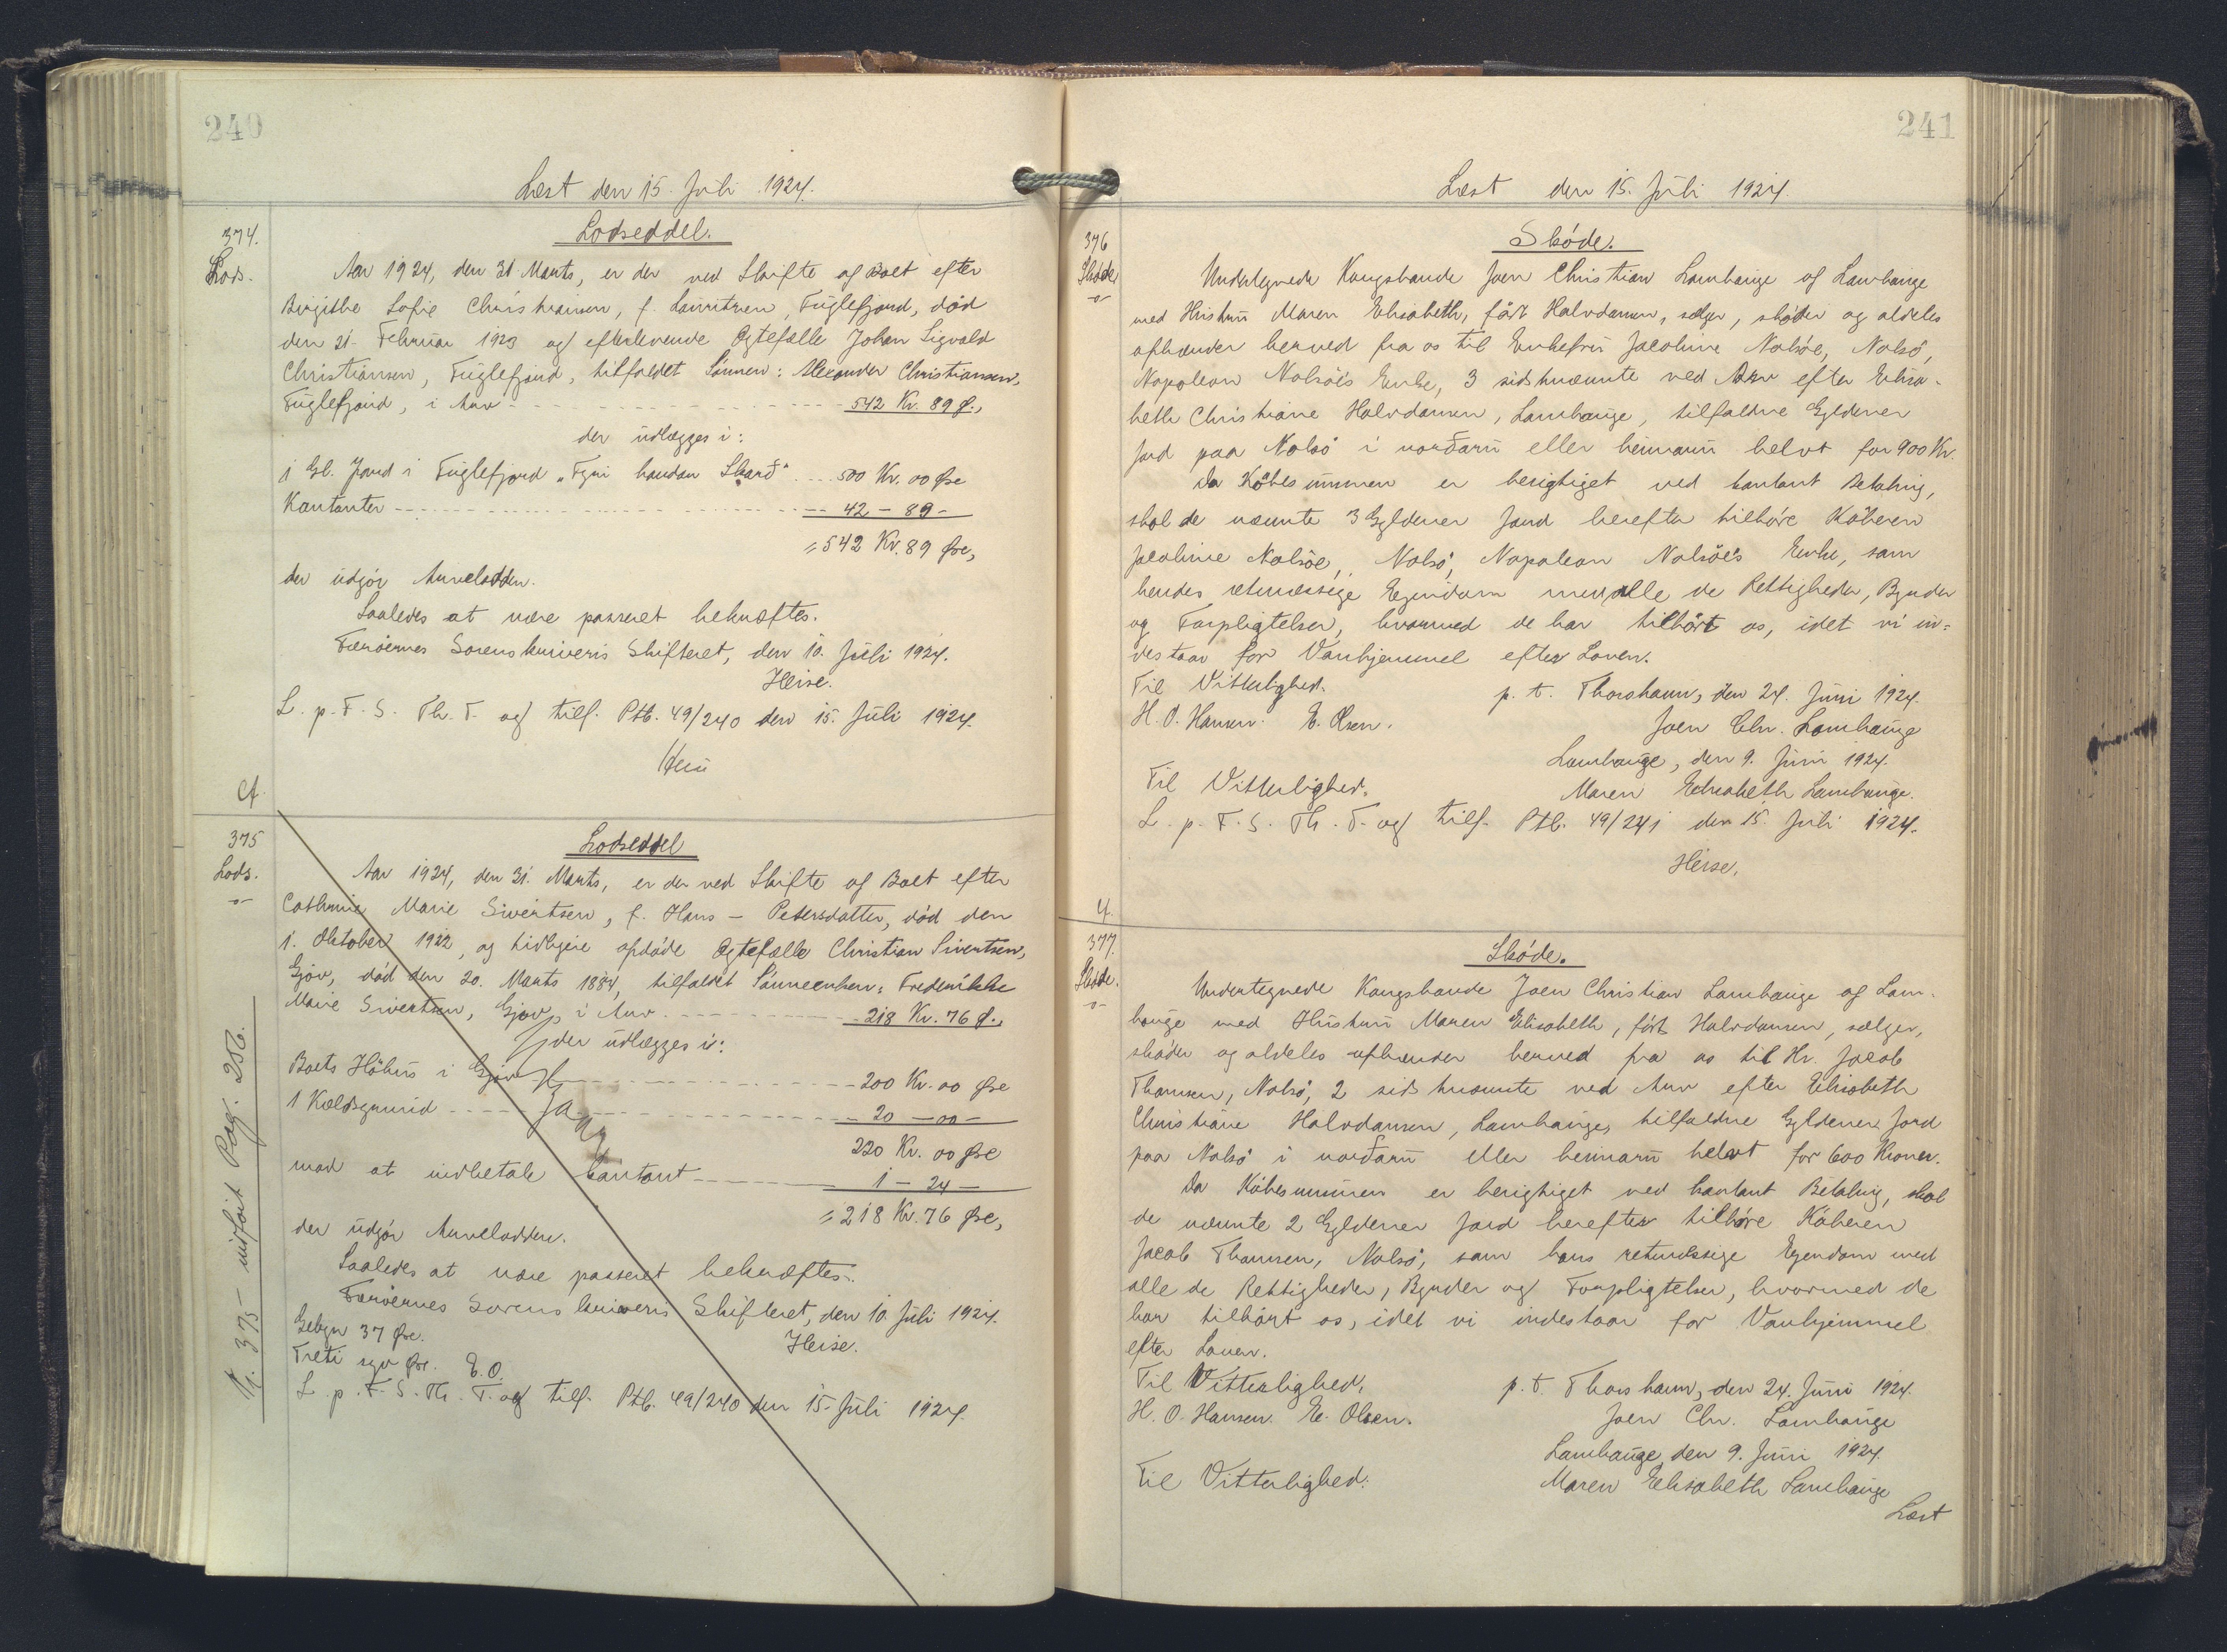 240
Læst den 15. Juli 1924.
374.
Lods.
Lodseddel.
Aar 1924, den 31 Marts, er der ved Skifte af Boet efter
Birgithe Sofie Christiansen, f. Lauritzen, Fuglefjord, død
den 21. Februar 1923 og efterlevende Ægtefælle Johan Sigvald
Christiansen, Fuglefjord, tilfaldet Sønnen: Alexander Christiansen,
Fuglefjord, i Arv 542 Kr. 89 Ø.,
der udlægges i:
1 Gl. Jord i Fuglefjord „Fyri handan Skarð“ 500 Kr. 00 Øre
Kontanter 42 – 89 –
= 542 Kr. 89 Øre,
der udgør Arvelodden.
Saaledes at være passeret bekræftes.
Færøernes Sorenskriveris Skifteret, den 10. Juli 1924.
Heise.
L. p. F. S. Th. T. og tilf. Ptb. 49/240 den 15. Juli 1924.
Heise
Cf.
375
Lods.
Lodseddel
Aar 1924, den 31. Marts, er der ved Skifte af Boet efter
Cathrine Marie Sivertsen, f. Hans – Petersdatter, død den
1. Oktober 1922, og tidligere afdøde Ægtefælle Christian Sivertsen,
Gjov, død den 20. Marts 1884, tilfaldet Sønneenken: Frederikke
Marie Sivertsen, Gjov, i Arv 218 Kr. 76 Ø.,
der udlægges i:
Boets Høhus i Gjov 200 Kr. 00 Øre
1 Kældsgrund 20 – 00 –
220 Kr. 00 Øre
mod at indbetale kontant 1 – 24 –
= 218 Kr. 76 Øre,
der udgør Arvelodden.
Saaledes at være passeret bekræftes.
Færøernes Sorenskriveris Skifteret, den 10. Juli 1924.
Heise.
Gebyr 37 Øre.
Treti syv Øre. E. O.
L. p. F. S. Th. T. og tilf. Ptb. 49/240 den 15. Juli 1924.
Nr. 375 – indført Pag. 256.
241
Læst den 15. Juli 1924.
376
Skøde
Skøde.
Undertegnede Kongsbonde Joen Christian Lamhauge af Lamhauge
med Hustru Maren Elisabeth, født Halvdansen, sælger, skøder og aldeles
afhænder herved fra os til Enkefru Jacobine Nolsöe, Nolsö,
Napoleon Nolsöe's Enke, 3 sidstnævnte ved Arv efter Elisa-
beth Christiane Halvdansen, Lamhauge, tilfaldne Gyldener
Jord paa Nolsö i norðaru eller heimaru helvt for 900 Kr.
Da Købesummen er berigtiget ved kontant Betaling,
skal de nævnte 3 Gyldener Jord herefter tilhøre Køberen
Jacobine Nolsöe, Nolsö, Napoleon Nolsöe's Enke, som
hendes retmæssige Ejendom med alle de Rettigheder, Byrder
og Forpligtelser, hvormed de har tilhørt os, idet vi in-
destaar for Vanhjemmel efter Loven.
Til Vitterlighed.
p. t. Thorshavn, den 24. Juni 1924.
H. O. Hansen. E. Olsen.
Joen Chr. Lamhauge
Lamhauge, den 9. Juni 1924.
Til Vitterlighed.
Maren Elisabeth Lamhauge.
L. p. F. S. Th. T. og tilf. Ptb. 49/241 den 15. Juli 1924.
Heise.
Cf.
377.
Skøde.
Skøde.
Undertegnede Kongsbonde Joen Christian Lamhauge af Lam-
hauge med Hustru Maren Elisabeth, født Halvdansen, sælger,
skøder og aldeles afhænder herved fra os til Hr. Jacob
Thomsen, Nolsö, 2 sidstnævnte ved Arv efter Elisabeth
Christiane Halvdansen, Lamhauge, tilfaldne Gyldener Jord
paa Nolsö i norðaru eller heimaru helvt for 600 Kroner.
Da Købesummen er berigtiget ved kontant Betaling, skal
de nævnte 2 Gyldener Jord herefter tilhøre Køberen
Jacob Thomsen, Nolsö, som hans retmæssige Ejendom med
alle de Rettigheder, Byrder og Forpligtelser, hvormed de
har tilhørt os, idet vi indestaar for Vanhjemmel
efter Loven.
Til Vitterlighed,
p. t. Thorshavn, den 24. Juni 1924.
H. O. Hansen. E. Olsen.
Joen Chr. Lamhauge
Lamhauge, den 9. Juni 1924.
Til Vitterlighed:
Maren Elisabeth Lamhauge
Læst